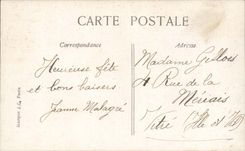 CARTE POSTALE
Correspondance
Adresse
Heureuse fête
et bons baisers
Jeanne
Madame
4 Rue de la
Mériais
Vitré (Ille et